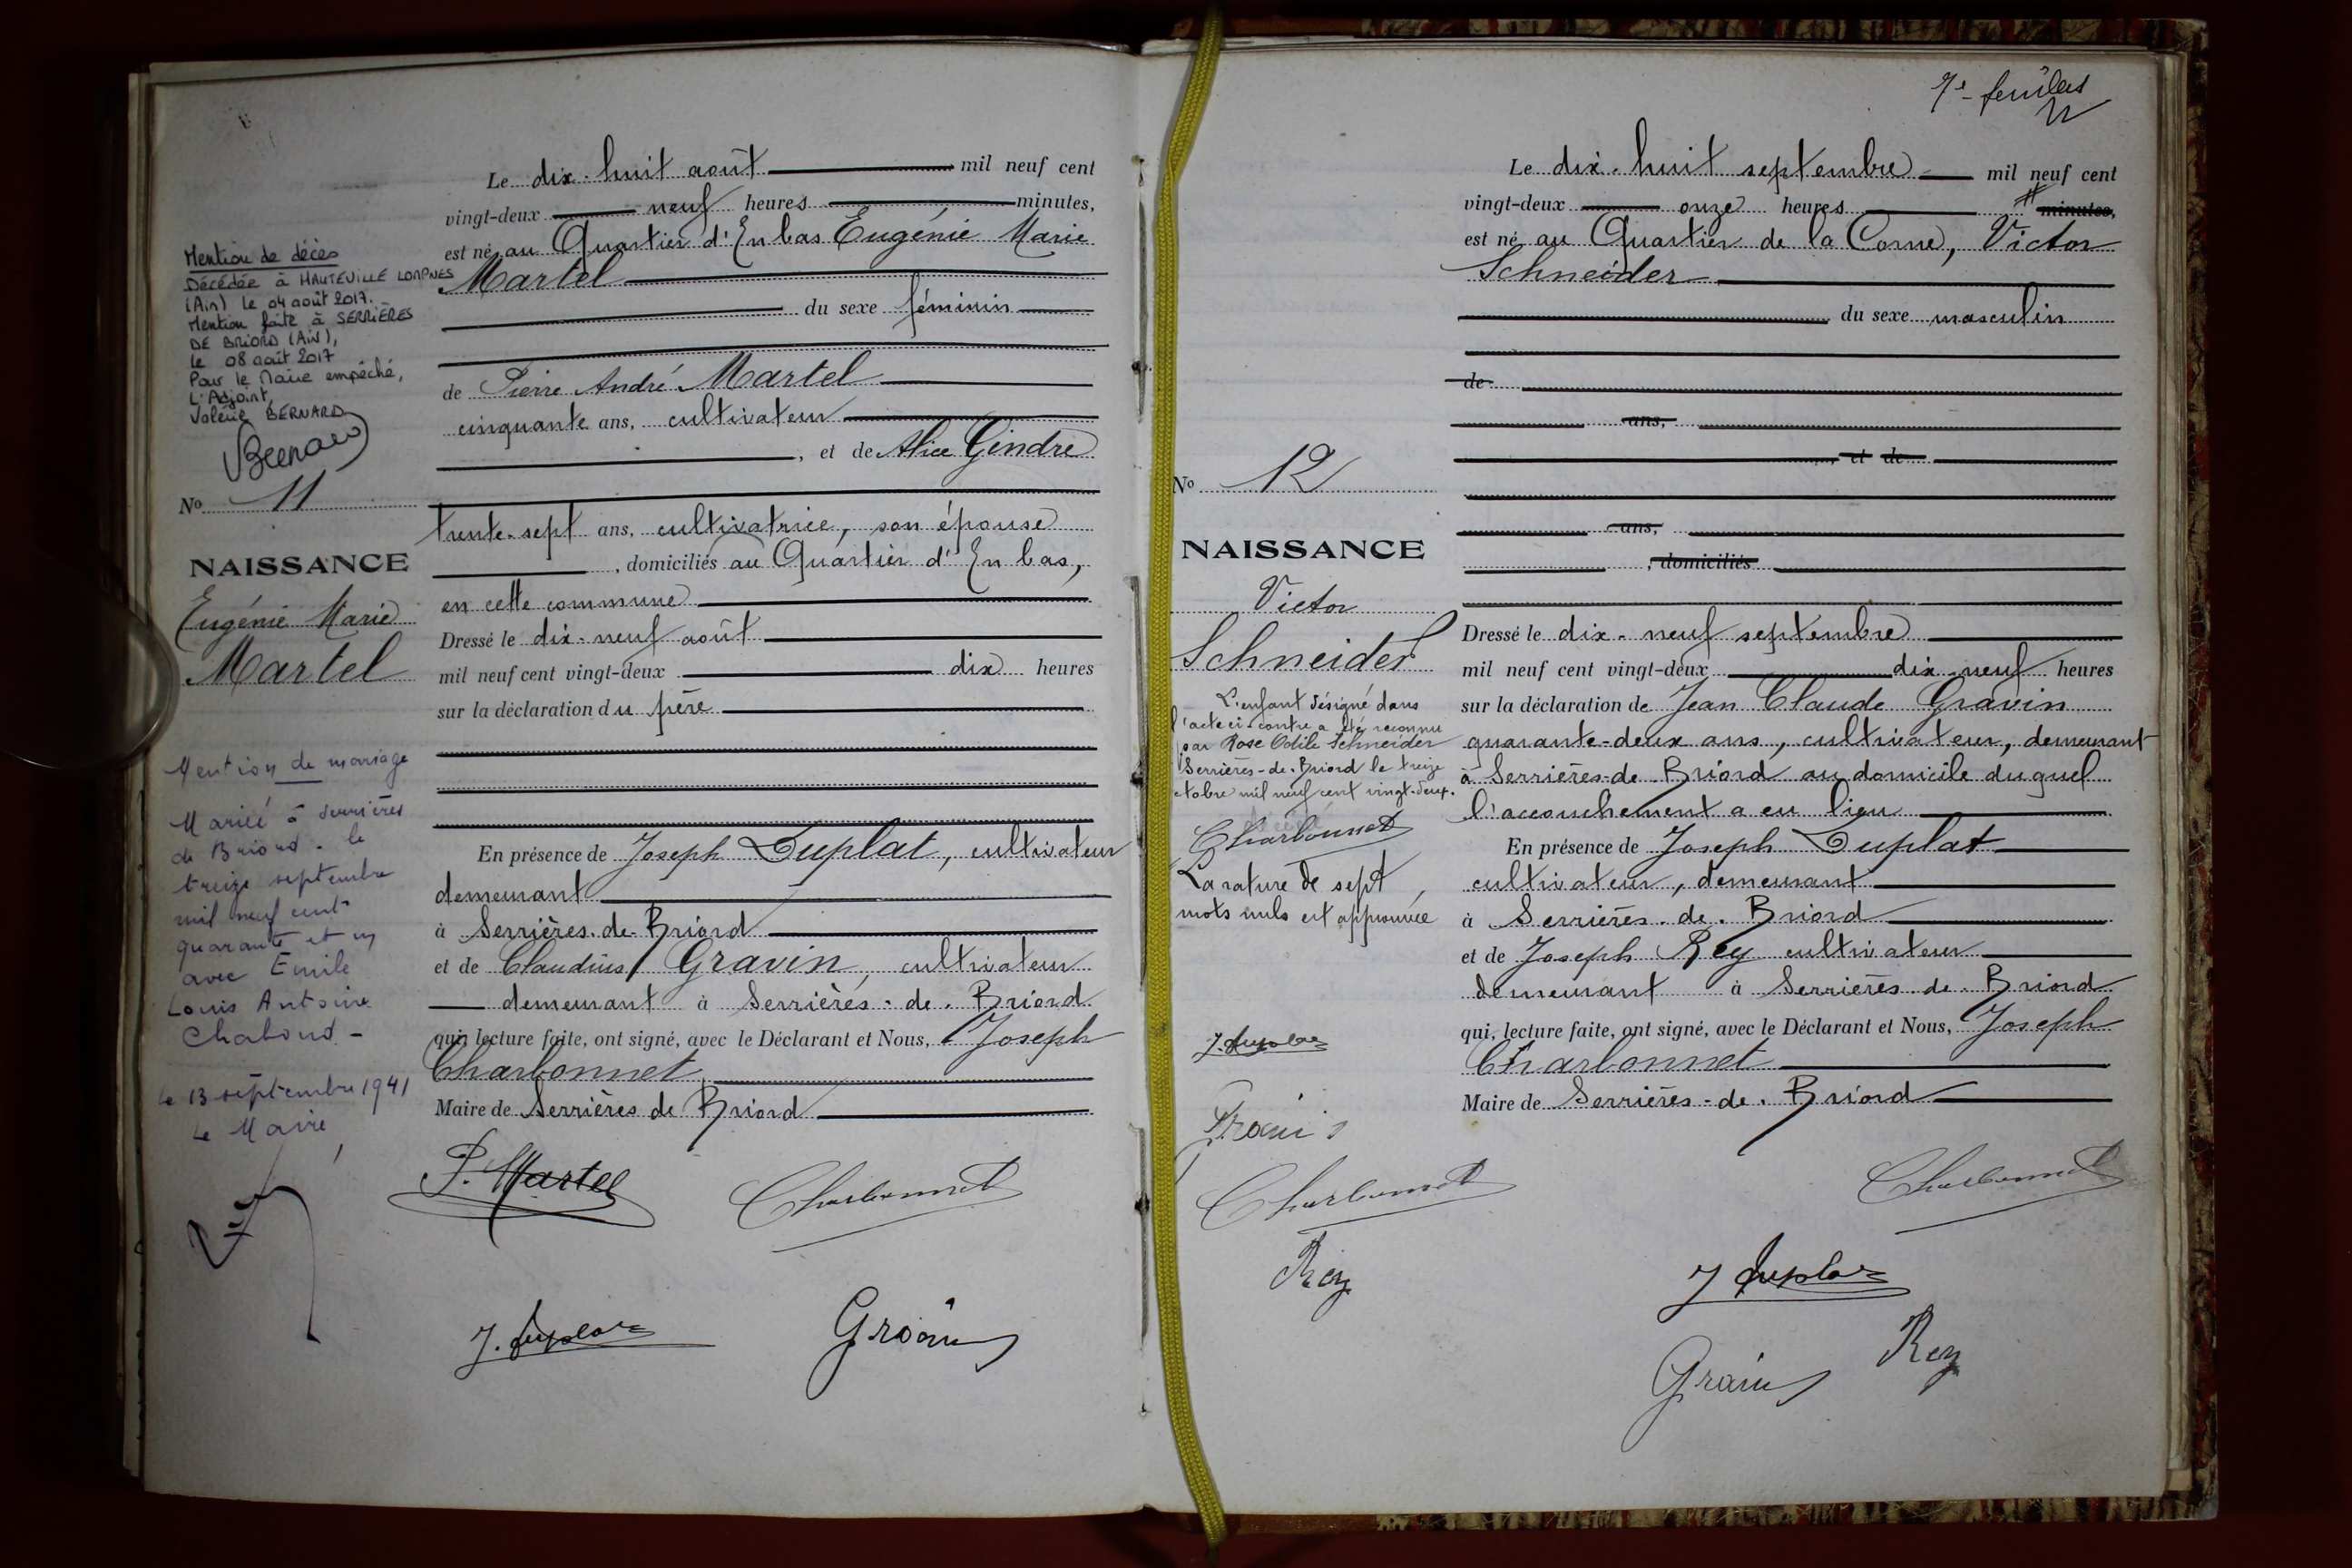 Mention de décès
Décédée à HAUTEVILLE LOMPNES
(Ain) le 04 août 2017.
Mention faite à SERRIÈRES
DE BRIORD (Ain),
le 08 août 2017
Pour le Maire empêché,
L'Adjoint,
Valérie BERNARD
Bernard
No 11
NAISSANCE
Eugénie Marie
Martel
Mention de mariage
Mariée à Serrières
de Briord. le
treize septembre
mil neuf cent
quarante et un
avec Emile
Louis Antoine
Chaboud -
Le 13 septembre 1941
Le Maire,
Le dix-huit août mil neuf cent
vingt-deux neuf heures minutes,
est né au Quartier d'En bas Eugénie Marie
Martel
du sexe féminin
de Pierre André Martel
cinquante ans, cultivateur
, et de Alice Gindre
trente-sept ans, cultivatrice, son épouse
, domiciliés au Quartier d'En bas,
en cette commune
Dressé le dix-neuf août
mil neuf cent vingt-deux dix heures
sur la déclaration du père
En présence de Joseph Duplat, cultivateur
demeurant
à Serrières-de-Briord
et de Claudius Gravin, cultivateur
demeurant à Serrières-de-Briord
qui, lecture faite, ont signé, avec le Déclarant et Nous, Joseph
Charbonnet
Maire de Serrières de Briord
P. Martel
Charbonnet
J. Duplat
Gravin
7e feuillet
No 12
NAISSANCE
Victor
Schneider
L'enfant désigné dans
l'acte ci-contre a été reconnu
par Rose Odile Schneider
Serrières-de-Briord le treize
octobre mil neuf cent vingt-deux.
Charbonnet
La rature de sept
mots nuls est approuvée
J. Duplat
Gravin
Charbonnet
Rey
Le dix-huit septembre mil neuf cent
vingt-deux onze heures minutes,
est né au Quartier de la Corne, Victor
Schneider
du sexe masculin
de
ans,
, et de
ans,
, domiciliés
Dressé le dix-neuf septembre
mil neuf cent vingt-deux dix-neuf heures
sur la déclaration de Jean Claude Gravin
quarante-deux ans, cultivateur, demeurant
à Serrières-de-Briord au domicile duquel
l'accouchement a eu lieu
En présence de Joseph Duplat
cultivateur, demeurant
à Serrières-de-Briord
et de Joseph Rey cultivateur
demeurant à Serrières-de-Briord
qui, lecture faite, ont signé, avec le Déclarant et Nous, Joseph
Charbonnet
Maire de Serrières-de-Briord
Charbonnet
J Duplat
Rey
Gravin